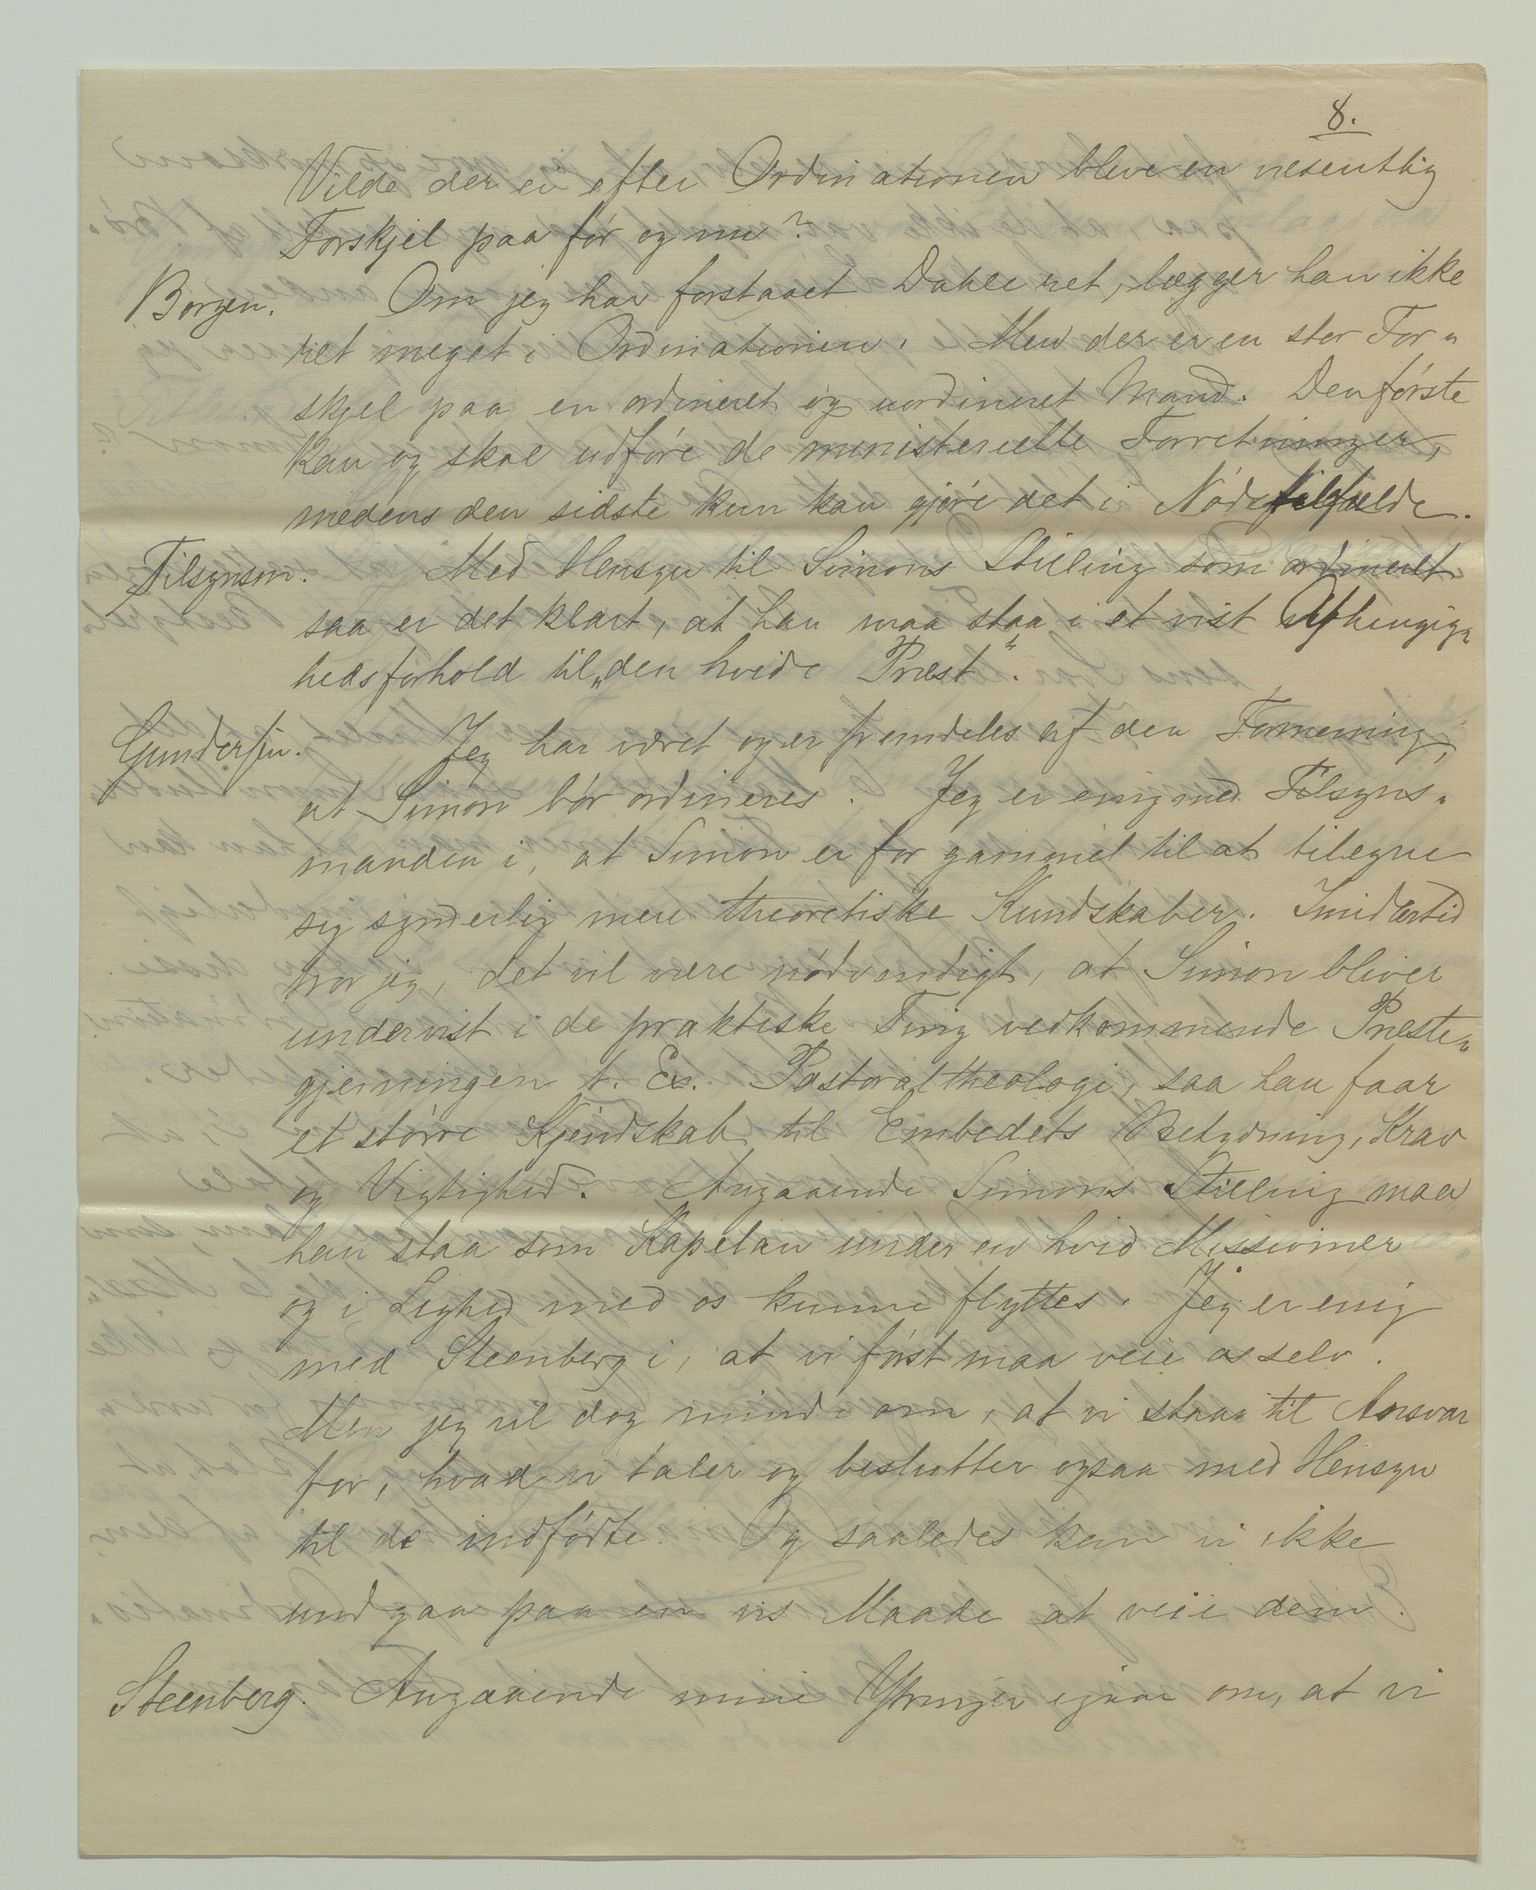 8.
Vilde der ei efter Ordinationen blive en vesentlig
Forskjel paa før og nu?
Borgen. Om jeg har forstaaet Dahle ret, lægger han ikke
ret meget i Ordinationen. Men der er en stor For-
skjel paa en ordineret og uordineret Mand. Den første
kan og skal udføre de ministerielle Forretninger,
medens den sidste kun kan gjøre det i Nødstilfælde.
Tilsynsm. Med Hensyn til Simons Stilling som ordineret
saa er det klart, at han maa staa i et vist Afhengig-
hedsforhold til „den hvide Præst".
Gundersen. Jeg har været og er fremdeles af den Formening,
at Simon bør ordineres. Jeg er enig med Tilsyns-
manden i, at Simon er for gammel til at tilegne
sig synderlig mere theoretiske Kundskaber. Imidlertid
tror jeg, det vil være nødvendigt, at Simon bliver
undervist i de praktiske Ting vedkommende Præste-
gjerningen t. Ex. Pastoraltheologi, saa han faar
et større Kjendskab til Embedets Betydning, Krav
og Vigtighed. Angaaende Simons Stilling maa
han staa som Kapelan under en hvid Missionær
og i Lighed med os kunne flyttes. Jeg er enig
med Steenberg i, at vi først maa veie os selv.
Men jeg vil dog minde om, at vi staar til Ansvar
for, hvad vi taler og beslutter ogsaa med Hensyn
til de indfødte. Og saaledes kan vi ikke
undgaa paa en vis Maade at veie dem.
Steenberg. Angaaende mine Ytringer igaar om, at vi